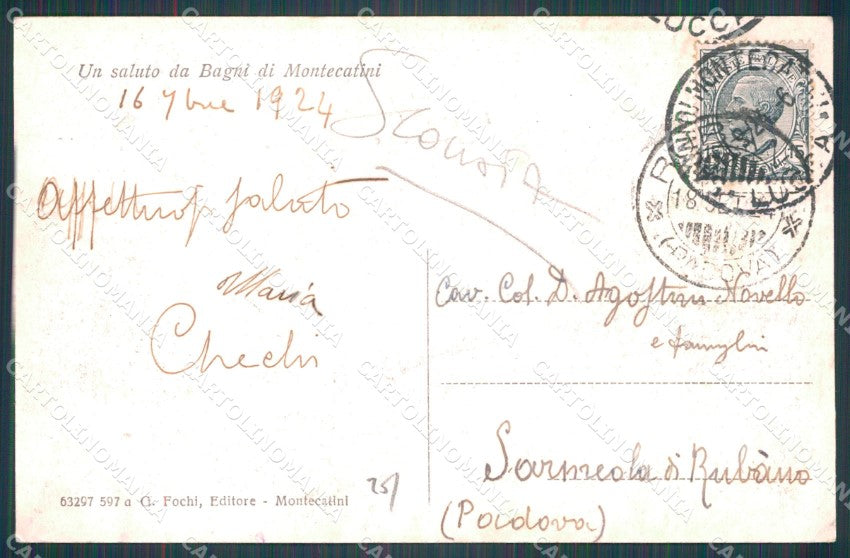 Un saluto da Bagni di Montecatini
16 7bre 1924
Affettuos saluto
Maria
Chechi
Cav. Col. D. Agostini Novello
e famiglia
Sarmeola di Rubano
(Padova)
63297 597 a G. Fochi, Editore - Montecatini
25/
LUCCA
BAGNI DI MONTECATINI
LUCCA
(PADOVA)
CARTOLINOMANIA